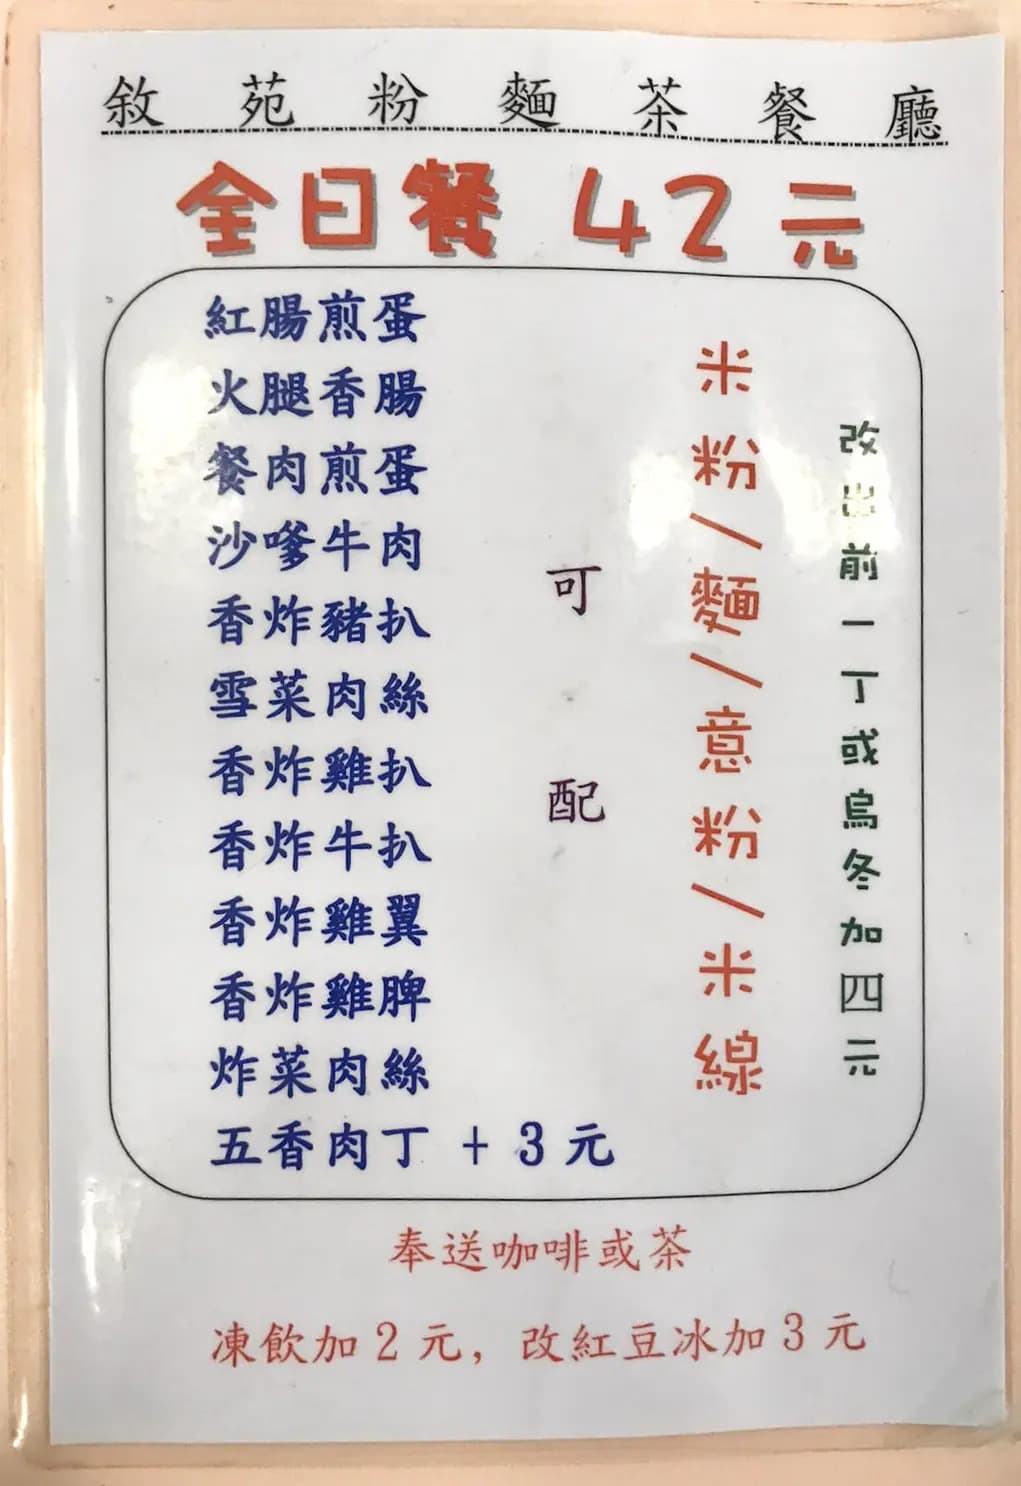 敘苑粉麵茶餐廳
全日餐 42元
紅腸煎蛋
火腿香腸
餐肉煎蛋
沙嗲牛肉
香炸豬扒
雪菜肉絲
香炸雞扒
香炸牛扒
香炸雞翼
香炸雞脾
炸菜肉絲
五香肉丁 + 3 元
可配
米粉/麵/意粉/米線
改出前一丁或烏冬加四元
奉送咖啡或茶
凍飲加2元，改紅豆冰加3元